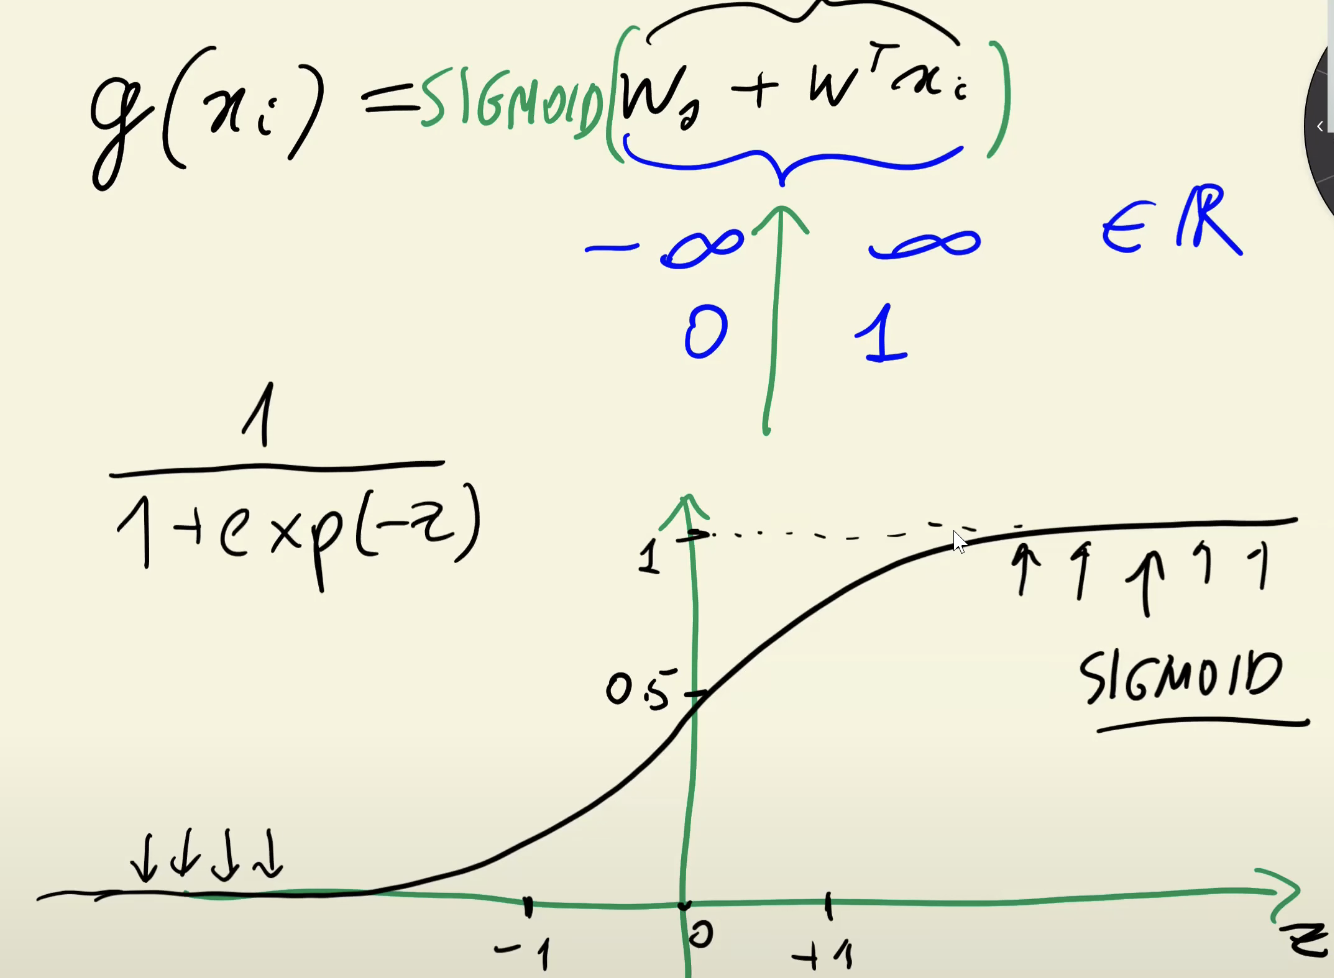 g(xᵢ) = SIGMOID(w₀ + wᵀxᵢ)
-∞ ∞ ∈ ℝ
0 1
1
1+exp(-z)
1
0.5
SIGMOID
-1 0 +1 z